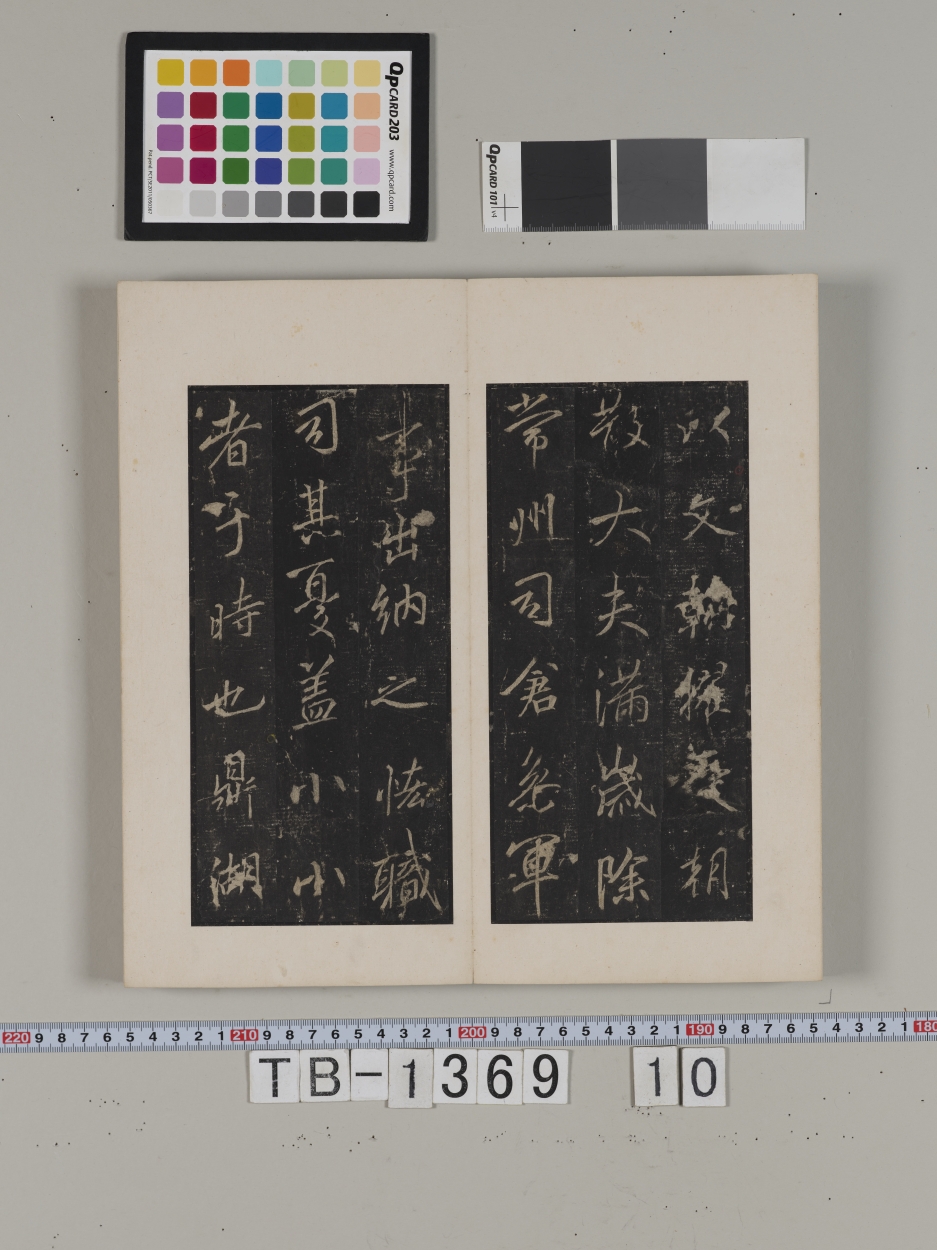 QPCARD 203 www.qpcard.com
QPCARD 101 v4
以文翰擢朝
散大夫滿歲除
常州司倉叅軍
事出納之恡職
司其憂盖小小
者于時也鼎湖
220 9 8 7 6 5 4 3 2 1 210 9 8 7 6 5 4 3 2 1 200 9 8 7 6 5 4 3 2 1 190 9 8 7 6 5 4 3 2 1 180
TB-1369 10